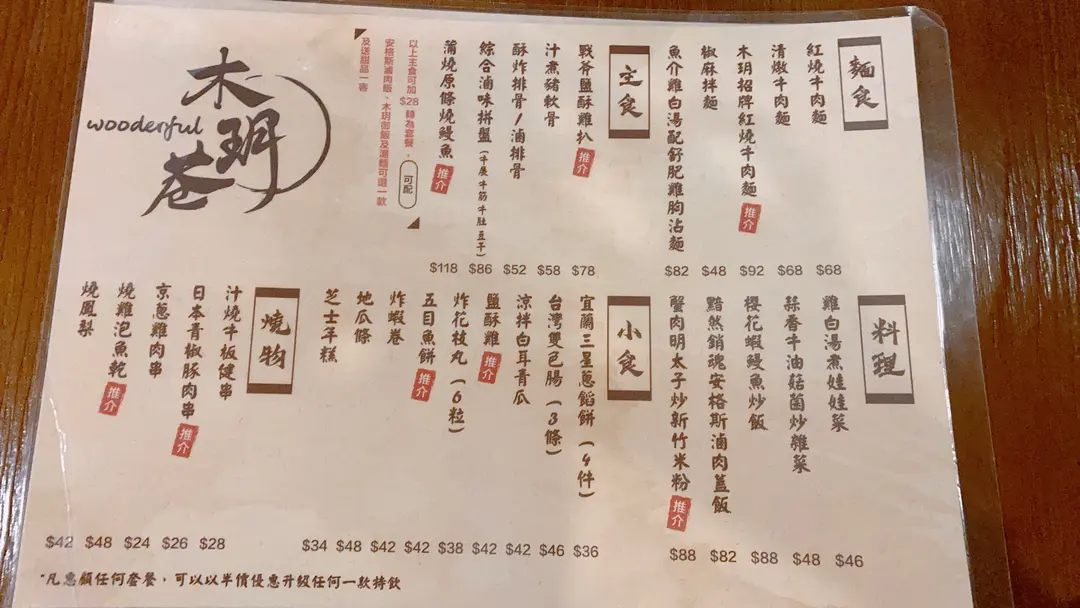 木玥巷
wooderful
麵食
紅燒牛肉麵 $68
清燉牛肉麵 $68
木玥招牌紅燒牛肉麵 推介 $92
椒麻拌麵 $48
魚介雞白湯配舒肥雞胸沾麵 $82
主食
戰斧鹽酥雞扒 推介 $78
汁煮豬軟骨 $58
酥炸排骨/滷排骨 $52
綜合滷味拼盤(牛展牛筋牛肚豆干) $86
蒲燒原條燒鰻魚 推介 $118
以上主食可加$28轉為套餐,可配
安格斯滷肉飯、木玥御飯及湯麵可選一款
及送甜品一客
料理
雞白湯煮娃娃菜 $46
蒜香牛油菇菌炒雜菜 $48
櫻花蝦鰻魚炒飯 $88
黯然銷魂安格斯滷肉蓋飯 $82
蟹肉明太子炒新竹米粉 推介 $88
小食
宜蘭三星蔥餡餅(4件) $36
台灣雙色腸(3條) $46
涼拌白耳青瓜 $42
鹽酥雞 推介 $42
炸花枝丸(6粒) $38
五目魚餅 推介 $42
炸蝦卷 $42
地瓜條 $48
芝士年糕 $34
燒物
汁燒牛板健串 $28
日本青椒豚肉串 推介 $26
京蔥雞肉串 $24
燒雞泡魚乾 推介 $48
燒鳳梨 $42
*凡惠顧任何套餐,可以以半價優惠升級任何一款特飲